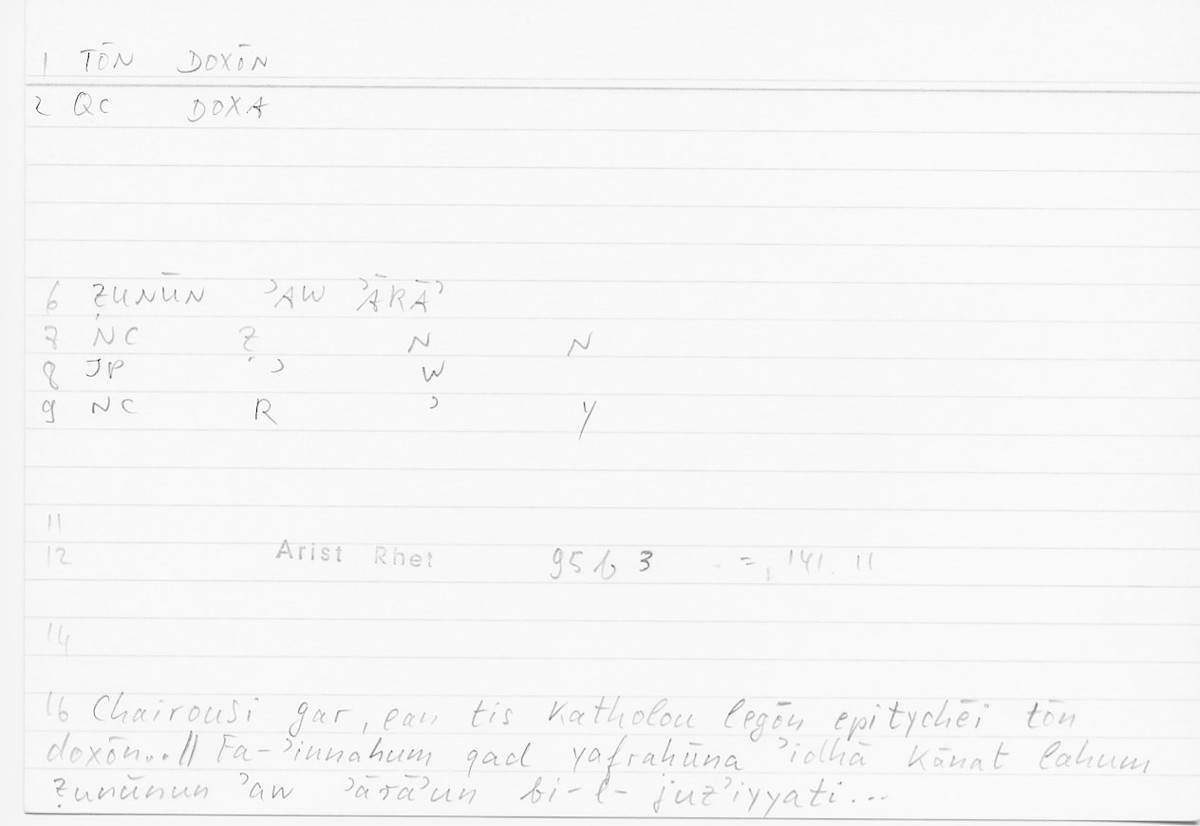 1 TŌN DOXŌN
2 QC DOXA
6 ẒUNŪN ʾAW ʾĀRĀʾ
7 NC Ẓ N N
8 JP ʾ W
9 NC R ʾ Y
11
12 Arist Rhet 95 b 3 =, 141. 11
14
16 Chairousi gar, ean tis katholou legōn epitychēi tōn
doxōn..// Fa-ʾinnahum qad yafraḥūna ʾidhā kānat lahum
ẓunūnun ʾaw ʾārāʾun bi-l-juzʾiyyati...